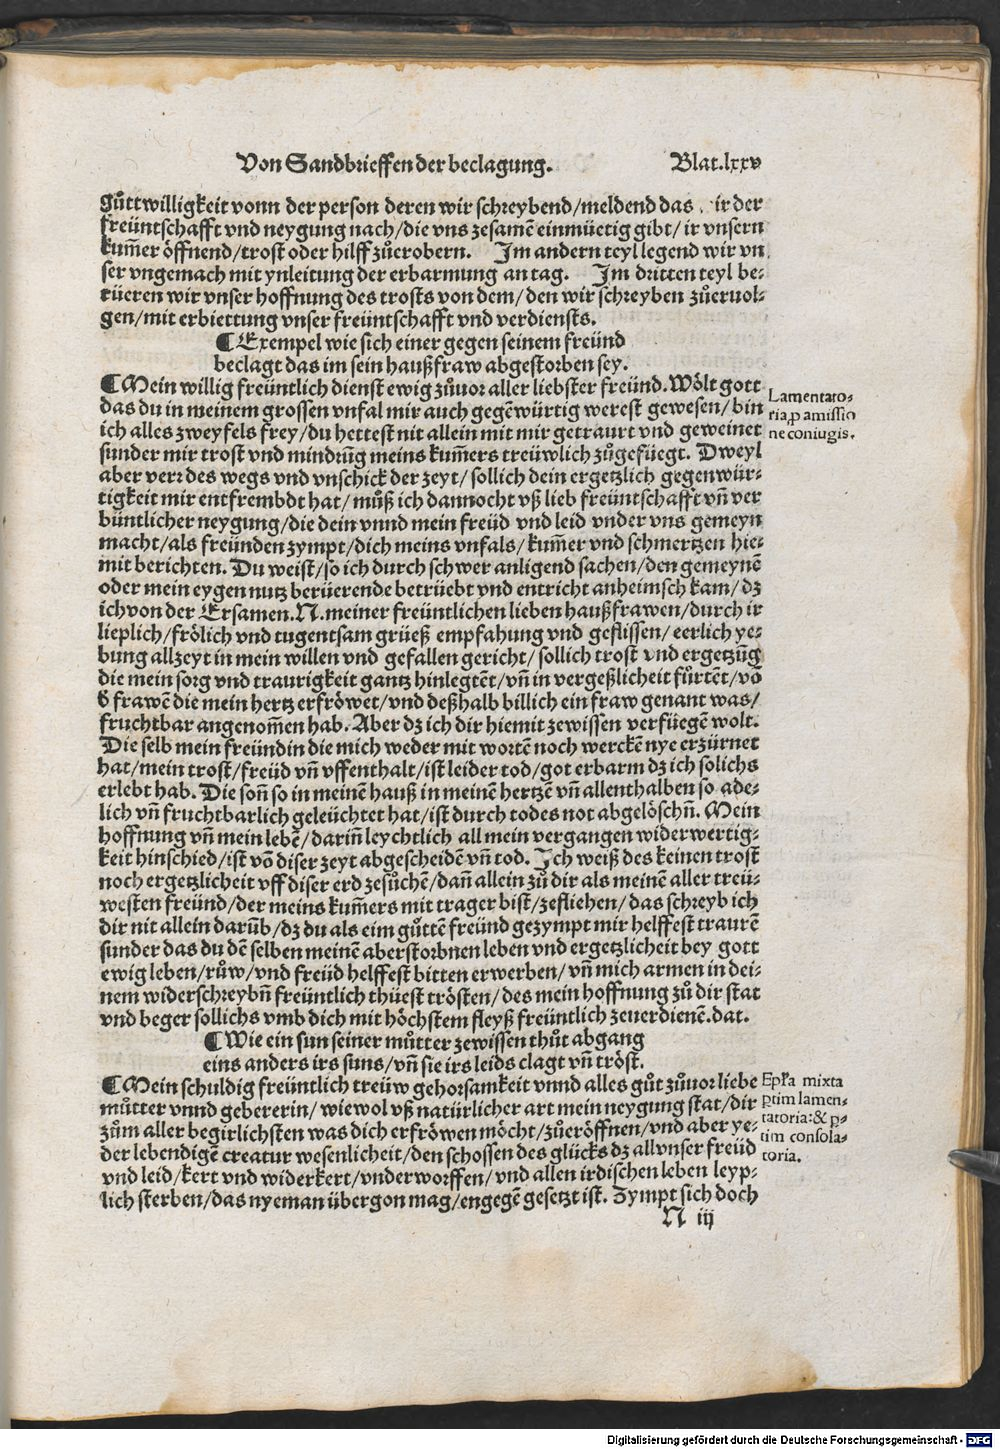 Von Sandbrieffen der beclagung. Blat.lxxv
gůttwilligkeit vonn der person deren wir schreybend/meldend das ir der
freüntschafft vnd neygung nach/die vns zesamē einmüetig gibt/ ir vnsern
kum̄er öffnend/trost oder hilff zůerobern. Im andern teyl legend wir vn
ser vngemach mit ynleitung der erbarmung an tag. Im dritten teyl be⸗
rüeren wir vnser hoffnung des trosts von dem/den wir schreyben zůeruol⸗
gen/mit erbiettung vnser freüntschafft vnd verdiensts.
¶ Exempel wie sich einer gegen seinem freünd
beclagt das im sein haußfraw abgestorben sey.
¶ Mein willig freüntlich dienst ewig zůuor aller liebster freünd. Wölt gott
das du in meinem grossen vnfal mir auch gegēwürtig werest gewesen/ bin
ich alles zweyfels frey/du hettest nit allein mit mir getraurt vnd geweinet
sunder mir trost vnd mindrūg meins kum̄ers treüwlich zůgefüegt. Dweyl
aber verr des wegs vnd vnschick der zeyt/ sollich dein ergetzlich gegenwür⸗
tigkeit mir entfrembdt hat/ můß ich dannocht vß lieb freüntschafft vn̄ ver
büntlicher neygung/die dein vnnd mein freüd vnd leid vnder vns gemeyn
macht/als freünden zympt/dich meins vnfals/kum̄er vnd schmertzen hie⸗
mit berichten. Du weist/so ich durch schwer anligend sachen/den gemeynē
oder mein eygen nutz berüerende betrüebt vnd entricht anheimsch kam/ dz
ich von der Ersamen.N.meiner freüntlichen lieben haußfrawen/durch ir
lieplich/frölich vnd tugentsam grüeß empfahung vnd geflissen/ eerlich ye⸗
bung allzeyt in mein willen vnd gefallen gericht/ sollich trost vnd ergetzūg
die mein sorg vnd traurigkeit gantz hinlegtēt/vn̄ in vergeßlicheit fůrtēt/vō
d̕ frawē die mein hertz erfröwet/vnd deßhalb billich ein fraw genant was/
fruchtbar angenom̄en hab. Aber dz ich dir hiemit zewissen verfüegē wolt.
Die selb mein freündin die mich weder mit wortē noch werckē nye erzürnet
hat/mein trost/freüd vn̄ vffenthalt/ist leider tod/got erbarm dz ich solichs
erlebt hab. Die son̄ so in meinē hauß in meinē hertzē vn̄ allenthalben so ade⸗
lich vn̄ fruchtbarlich geleüchtet hat/ist durch todes not abgelöschn̄. Mein
hoffnung vn̄ mein lebē/darin̄ leychtlich all mein vergangen widerwertig⸗
keit hinschied/ist vō diser zeyt abgescheidē vn̄ tod. Ich weiß des keinen trost
noch ergetzlicheit vff diser erd zesůchē/dan̄ allein zů dir als meinē aller treü⸗
westen freünd/der meins kum̄ers mit trager bist/zefliehen/das schreyb ich
dir nit allein darūb/dz du als eim gůttē freünd gezympt mir helffest traurē
sunder das du dē selben meinē aberstorbnen leben vnd ergetzlicheit bey gott
ewig leben/růw/vnd freüd helffest bitten erwerben/ vn̄ mich armen in dei⸗
nem widerschreybn̄ freüntlich thüest trösten/des mein hoffnung zů dir stat
vnd beger sollichs vmb dich mit höchstem fleyß freüntlich zeuerdienē.dat.
¶ Wie ein sun seiner můtter zewissen thůt abgang
eins anders irs suns/vn̄ sie irs leids clagt vn̄ tröst.
¶ Mein schuldig freüntlich treüw gehorsamkeit vnnd alles gůt zůuor liebe
můtter vnnd gebererin/wiewol vß natürlicher art mein neygung stat/dir
zům aller begirlichsten was dich erfröwen möcht/zůeröffnen/vnd aber ye⸗
der lebendigē creatur wesenlicheit/den schossen des glücks dz all vnser freüd
vnd leid/kert vnd widerkert/vnderworffen/vnd allen irdischen leben leyp⸗
lich sterben/das nyeman übergon mag/engegē gesetzt ist. Zympt sich doch
N iij
Lamentato⸗
ria ꝓ amissio
ne coniugis.
Ep̄ra mixta
ptim lamen⸗
tatoria:& p⸗
tim consola⸗
toria.
Digitalisierung gefördert durch die Deutsche Forschungsgemeinschaft - DFG